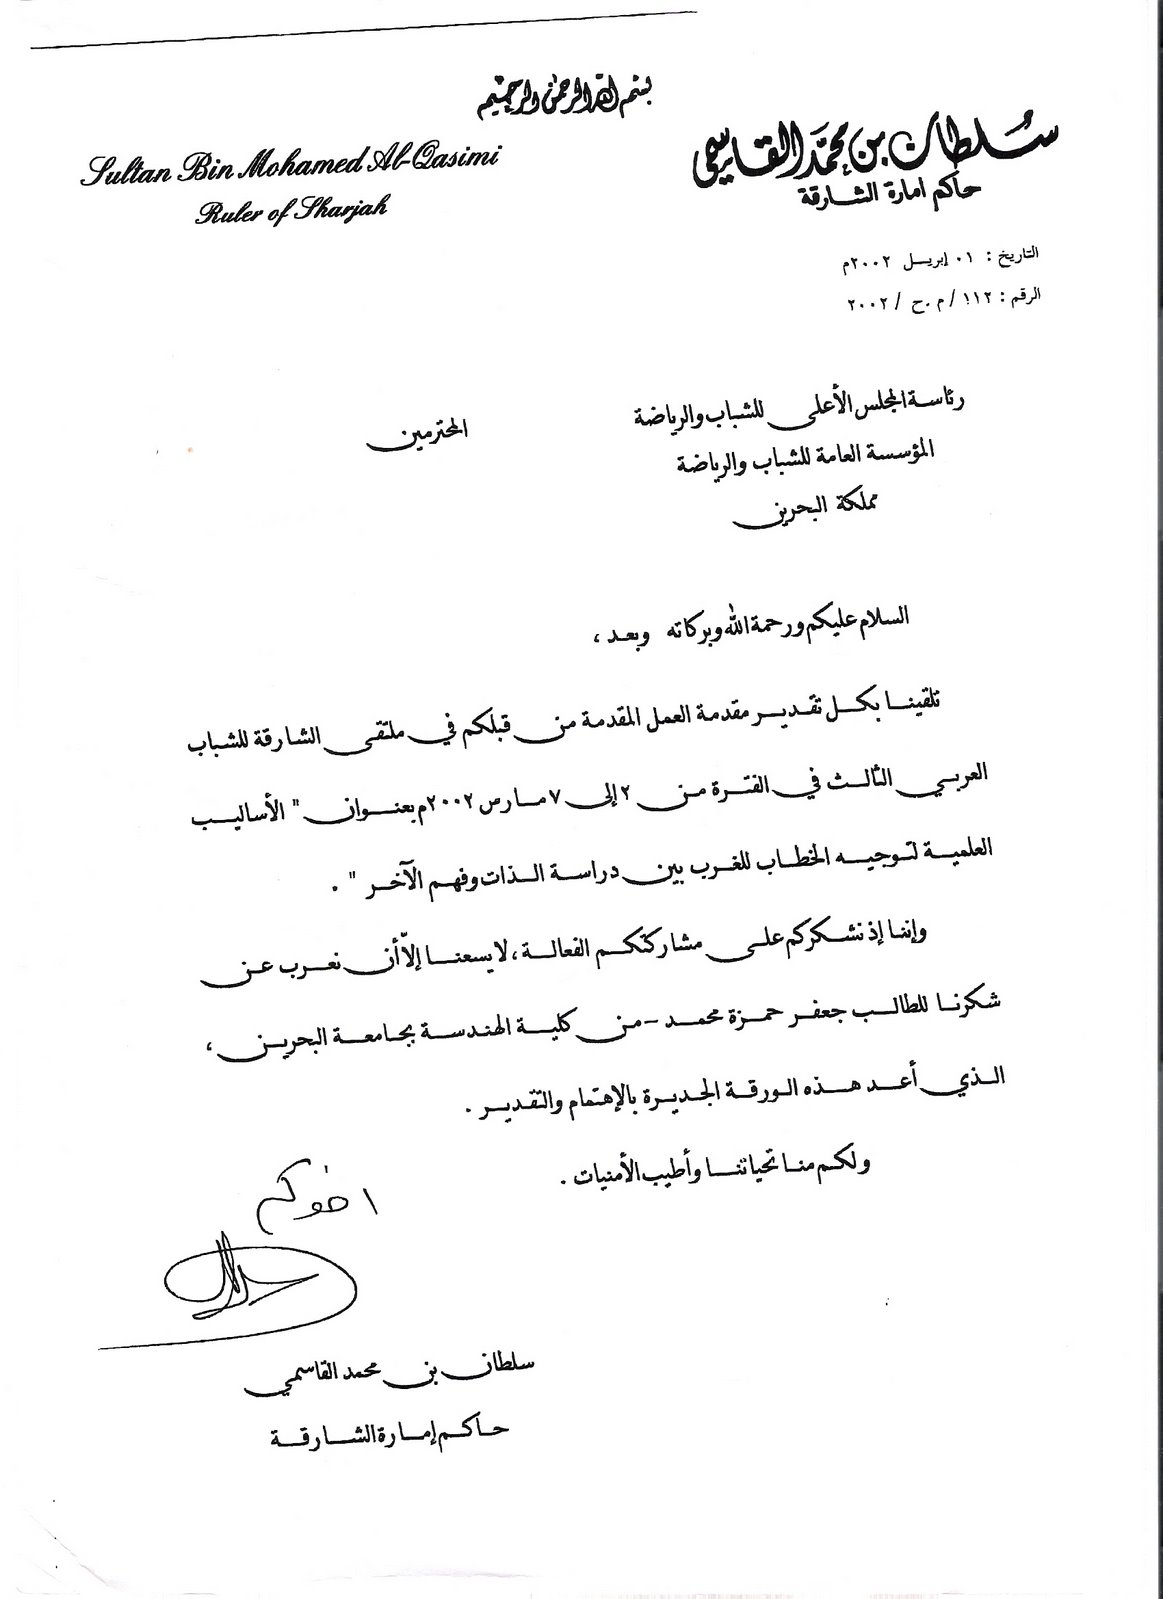 بسم الله الرحمن الرحيم
سلطان بن محمد القاسمي
حاكم امارة الشارقة
Sultan Bin Mohamed Al-Qasimi
Ruler of Sharjah
التاريخ : ٠١ إبريل ٢٠٠٢م
الرقم : ١١٢ / م.ح / ٢٠٠٢
رئاسة المجلس الأعلى للشباب والرياضة المحترمين
المؤسسة العامة للشباب والرياضة
مملكة البحرين
السلام عليكم ورحمة الله وبركاته وبعد ،
تلقينا بكل تقدير مقدمة العمل المقدمة من قبلكم في ملتقى الشارقة للشباب
العربي الثالث في الفترة من ٢ إلى ٧ مارس ٢٠٠٢م بعنوان " الأساليب
العلمية لتوجيه الخطاب للغرب بين دراسة الذات وفهم الآخر " .
وإننا إذ نشكركم على مشاركتكم الفعالة ، لا يسعنا إلاّ أن نعرب عن
شكرنا للطالب جعفر حمزة محمد - من كلية الهندسة بجامعة البحرين ،
الذي أعد هذه الورقة الجديرة بالإهتمام والتقدير .
ولكم منا تحياتنا وأطيب الأمنيات .
اخوكم
سلطان بن محمد القاسمي
حاكم إمارة الشارقة